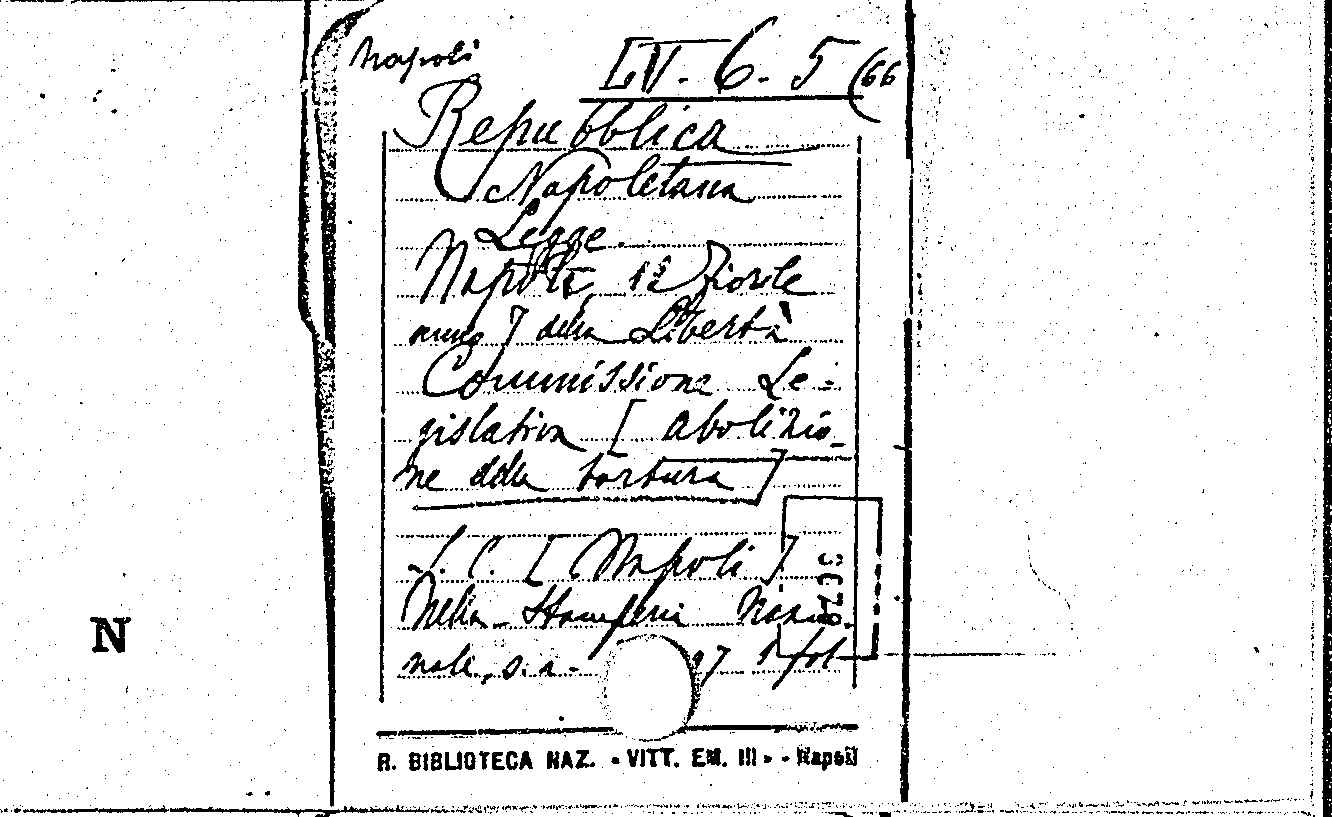 Napoli
LV. 6. 5 (66
Repubblica
Napoletana
Legge.
Napoli, 12 Fiorile
anno 7 della Libertà
Commissione Le-
gislativa [ Abolizio-
ne della tortura ]
S. C. [ Napoli ]
Nella Stamperia Nazio-
nale, s. a. 1 fol
N
R. BIBLIOTECA NAZ. « VITT. EM. III » - Napoli